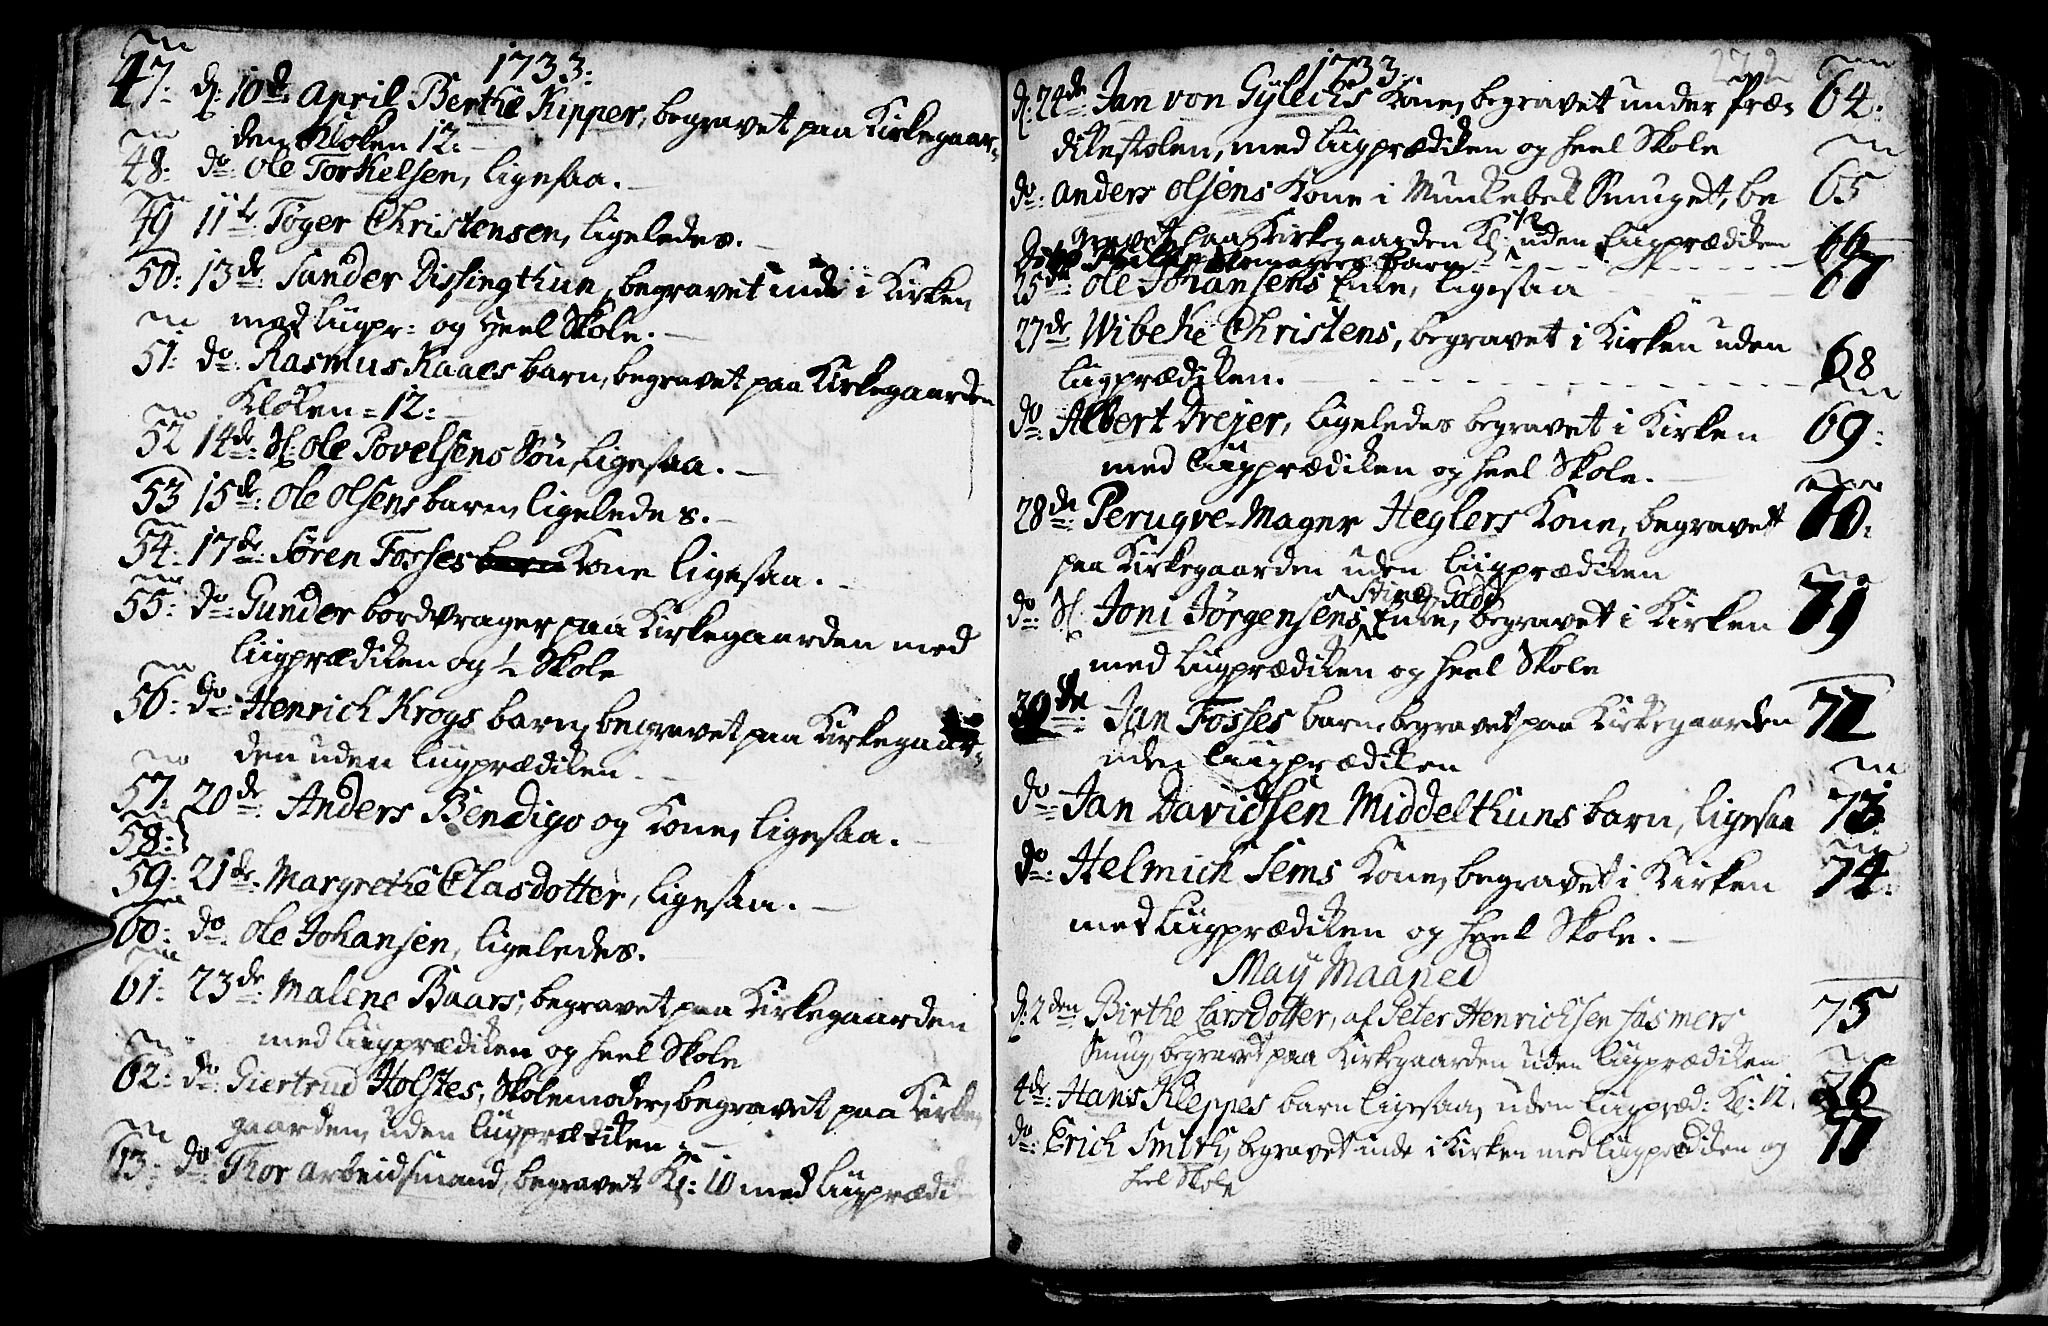 1733:
47: d: 10de: April Berthe Kipper, begravet paa Kirkegaar-
den Kloken 12:
48: do: Ole Torkelsen, ligesaa.
49 11te: Tøger Christensen, ligeledes.
50: 13de: Sander Dissingthun, begravet inde i Kirken
med Liigpr: og Heel Skole.
51: do: Rasmus Kaaes barn, begravet paa Kirkegaarden
Kloken = 12:
52 14de: Sl: Ole Povelsens Søn, ligesaa.
53 15de: Ole Olsens barn, ligeledes.
54: 17de: Søren Fosses barn Kone ligesaa.
55: do: Gunder bordvrager paa Kirkegaarden med
Liigprædiken og 1/2 Skole
56: do: Henrich Krogs barn, begravet paa Kirkegaar-
den uden Liigprædiken.
57: 20de: Anders Bendigo og Kone, ligesaa.
58:
59: 21de: Margrethe Clasdotter, ligesaa.
60: do: Ole Johansen, ligeledes.
61: 23de: Malene Baars, begravet paa Kirkegaarden
med Liigprædiken og heel Skole
62: do: Giertrud Holstes, Skolemoder, begravet paa Kirke-
gaarden, uden Liigprædiken.
63: do: Thor Arbeidsmand, begravet Kl: 10 med Liigprædi
1733. 272
d: 24de Jan von Gÿlechs Kone, begravet under Præ- 64:
dikestolen, med Liigprædiken og heel Skole
do: Anders Olsens Kone i Munkebek Smuget, be 65
gravet paa Kirkegaarden Kl: 12 uden Liigprædiken
barn 66
25de: Ole Johansens Enke, ligesaa 67
27de Wibeke Christens, begravet i Kirken uden
Liigprædiken. 68
do Albert Drejer, ligeledes begravet i Kirken 69:
med Liigprædiken og heel Skole.
28de: Peruqve-Mager Heglers Kone, begravet 70:
paa Kirkegaarden uden Liigprædiken
do: Sl: Joni Jørgensens Enke, begravet i Kirken 71
med Liigprædiken og heel Skole
30de: Jan Fosses barn, begravet paa Kirkegaarden 72
uden Liigprædiken
do Jan Davidsen Middelthuns barn, ligesaa 73
do: Helmich Sems Kone, begravet i Kirken 74:
med Liigprædiken og heel Skole.
Maÿ Maaned
d: 2den Birthe Larsdotter, af Peter Henrichsen Fasmers 75
Smug, begravet paa Kirkegaarden uden Liigprædiken
4de: Hans Kleppes barn ligesaa, uden Liigpræd: Kl: 12. 76
do: Erich Smith, begravet inde i Kirken med Liigprædiken og 77
heel Skole